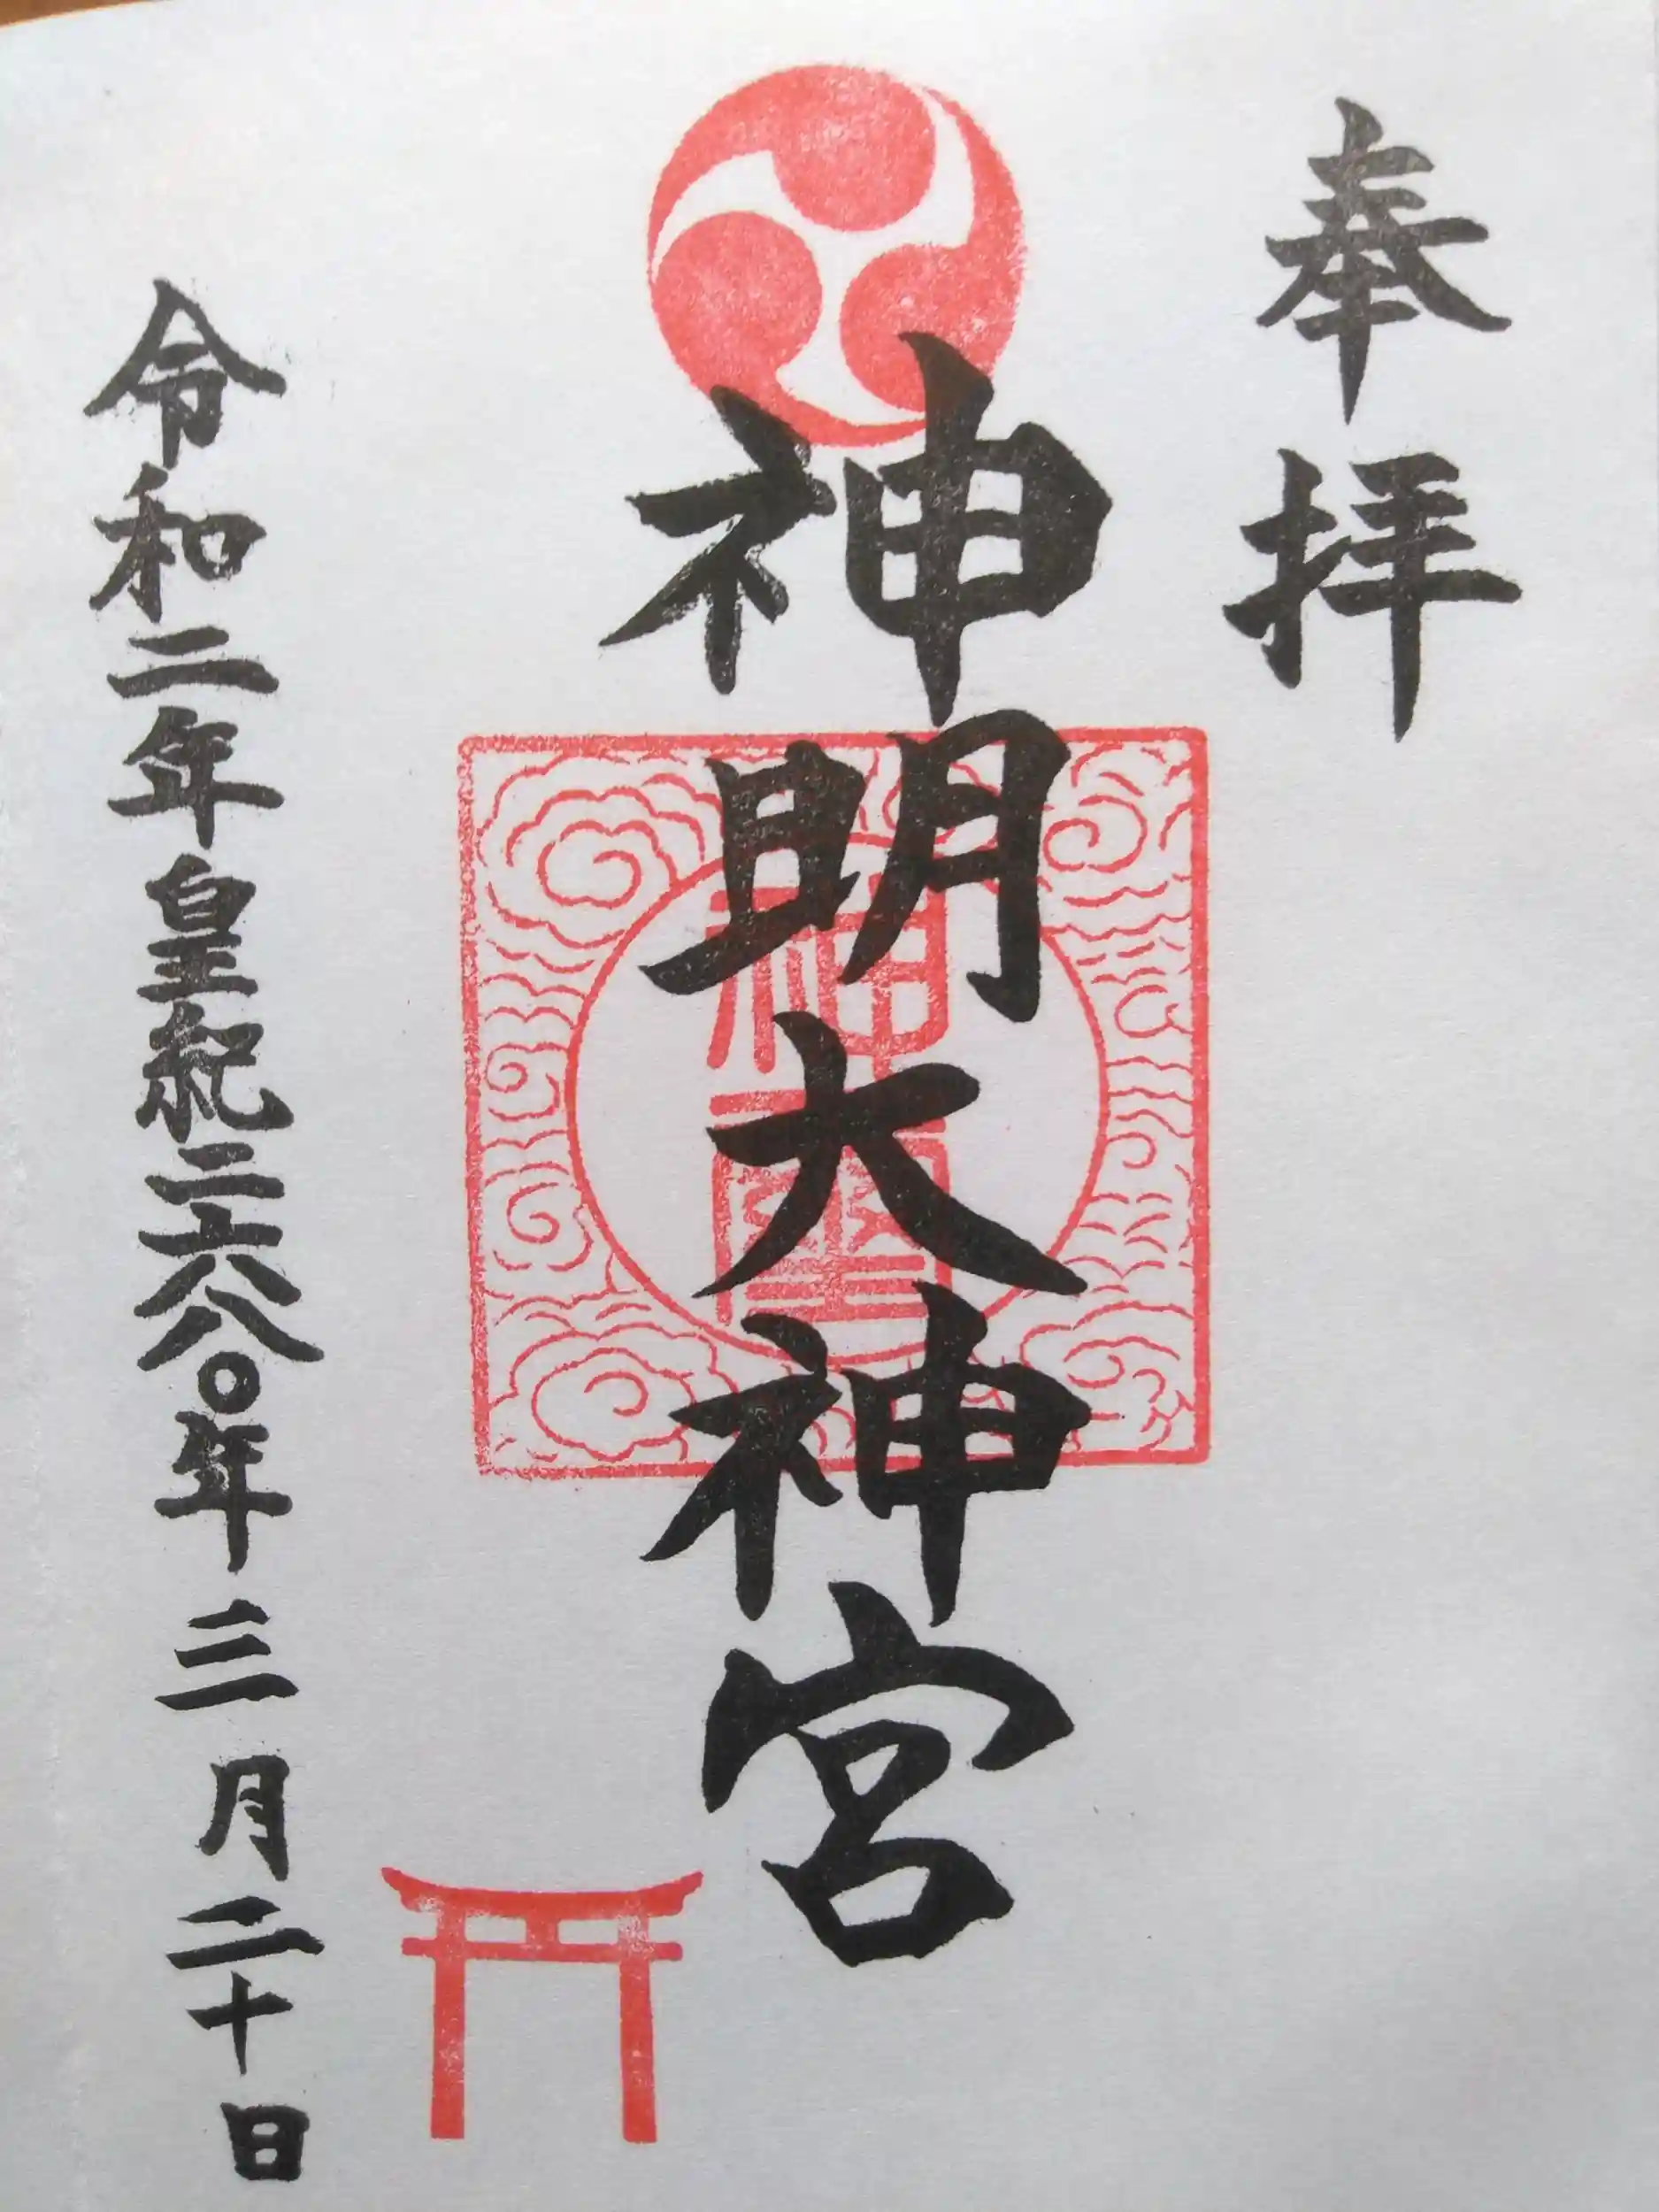 奉拝
神明大神宮
神璽
令和二年皇紀二六八〇年三月二十日